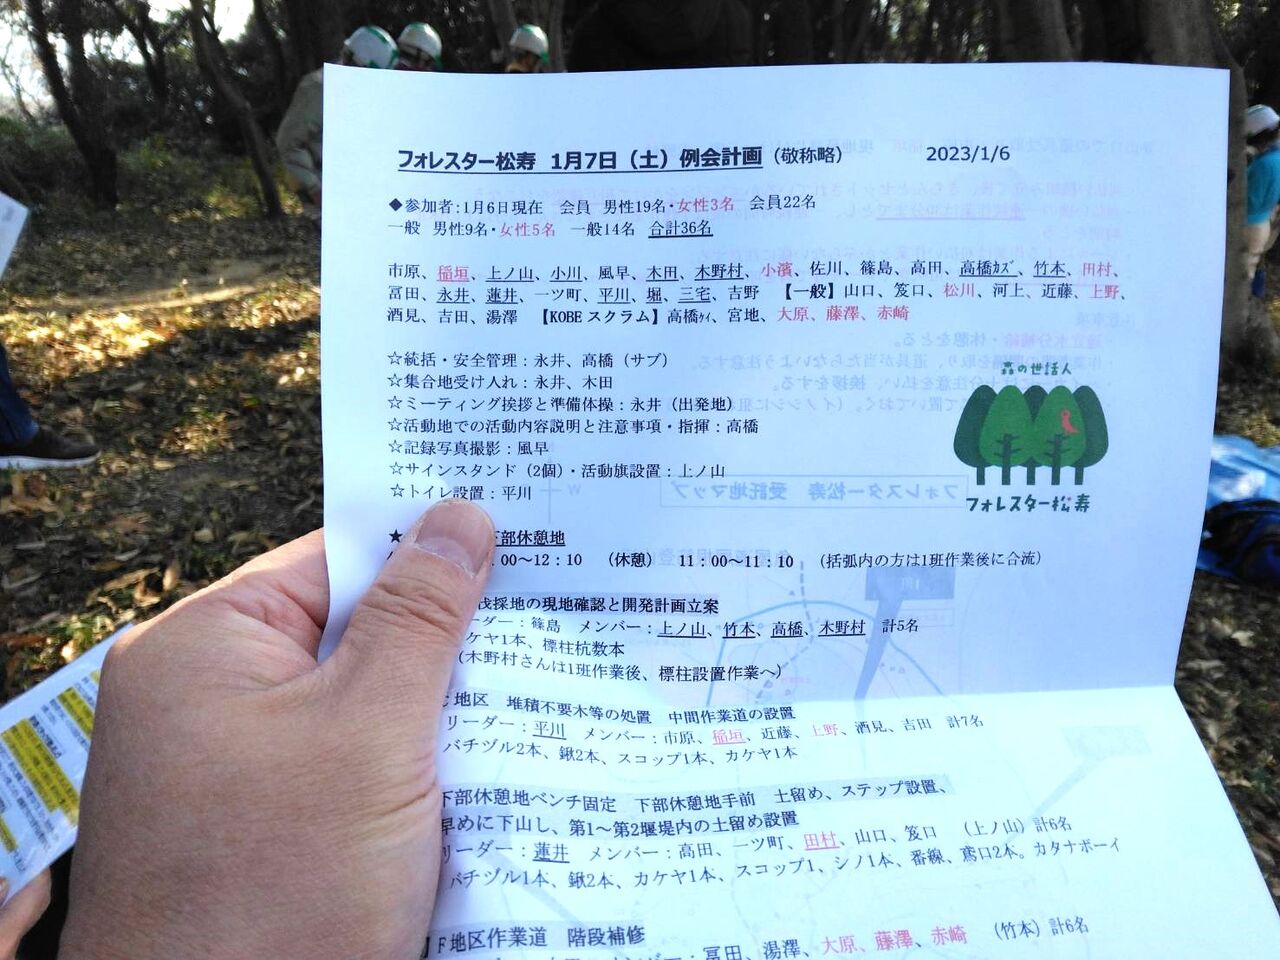 フォレスター松寿 1月7日(土)例会計画(敬称略) 2023/1/6
◆参加者:1月6日現在 会員 男性19名・女性3名 会員22名
一般 男性9名・女性5名 一般14名 合計36名
市原、稲垣、上ノ山、小川、風早、木田、木野村、小濱、佐川、篠島、高田、高橋ｶｽﾞ、竹本、田村、
冨田、永井、蓮井、一ツ町、平川、堀、三宅、吉野 【一般】山口、笈口、松川、河上、近藤、上野、
酒見、吉田、湯澤 【KOBEスクラム】高橋ｹｲ、宮地、大原、藤澤、赤崎
☆統括・安全管理:永井、高橋(サブ)
☆集合地受け入れ:永井、木田
☆ミーティング挨拶と準備体操:永井(出発地)
☆活動地での活動内容説明と注意事項・指揮:高橋
☆記録写真撮影:風早
☆サインスタンド(2個)・活動旗設置:上ノ山
☆トイレ設置:平川
森の世話人
フォレスター松寿
★ 下部休憩地
00~12:10 (休憩) 11:00~11:10 (括弧内の方は1班作業後に合流)
伐採地の現地確認と開発計画立案
ーダー:篠島 メンバー:上ノ山、竹本、高橋、木野村 計5名
ケヤ1本、標柱杭数本
(木野村さんは1班作業後、標柱設置作業へ)
C地区 堆積不要木等の処置 中間作業道の設置
リーダー:平川 メンバー:市原、稲垣、近藤、上野、酒見、吉田 計7名
バチヅル2本、鍬2本、スコップ1本、カケヤ1本
下部休憩地ベンチ固定 下部休憩地手前 土留め、ステップ設置、
早めに下山し、第1~第2堰堤内の土留め設置
リーダー:蓮井 メンバー:高田、一ツ町、田村、山口、笈口 (上ノ山)計6名
バチヅル1本、鍬2本、カケヤ1本、スコップ1、シノ1本、番線、鳶口2本。カタナボーイ
F地区作業道 階段補修
メンバー:冨田、湯澤、大原、藤澤、赤崎 (竹本)計6名